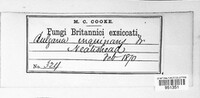 M. C. COOKE.
Fungi Britannici exsicati,
Bulgaria inquinans Fr
Neatishead
Feb 1870
No. 324